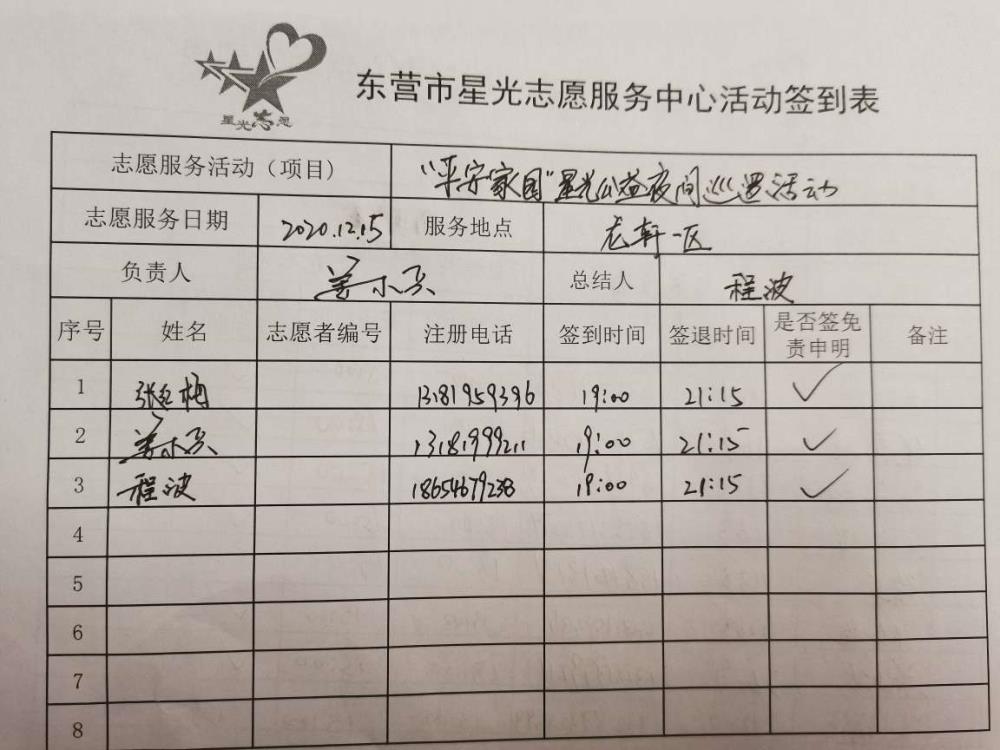 星光志愿
东营市星光志愿服务中心活动签到表
志愿服务活动（项目） “平安家园”星光公益夜间巡逻活动
志愿服务日期 2020.12.15 服务地点 龙轩一区
负责人 姜小 总结人 程波
序号 姓名 志愿者编号 注册电话 签到时间 签退时间 是否签免责申明 备注
1 张红梅 13181959396 19:00 21:15 ✓
2 姜小 13181999211 19:00 21:15 ✓
3 程波 18654679238 19:00 21:15 ✓
4
5
6
7
8